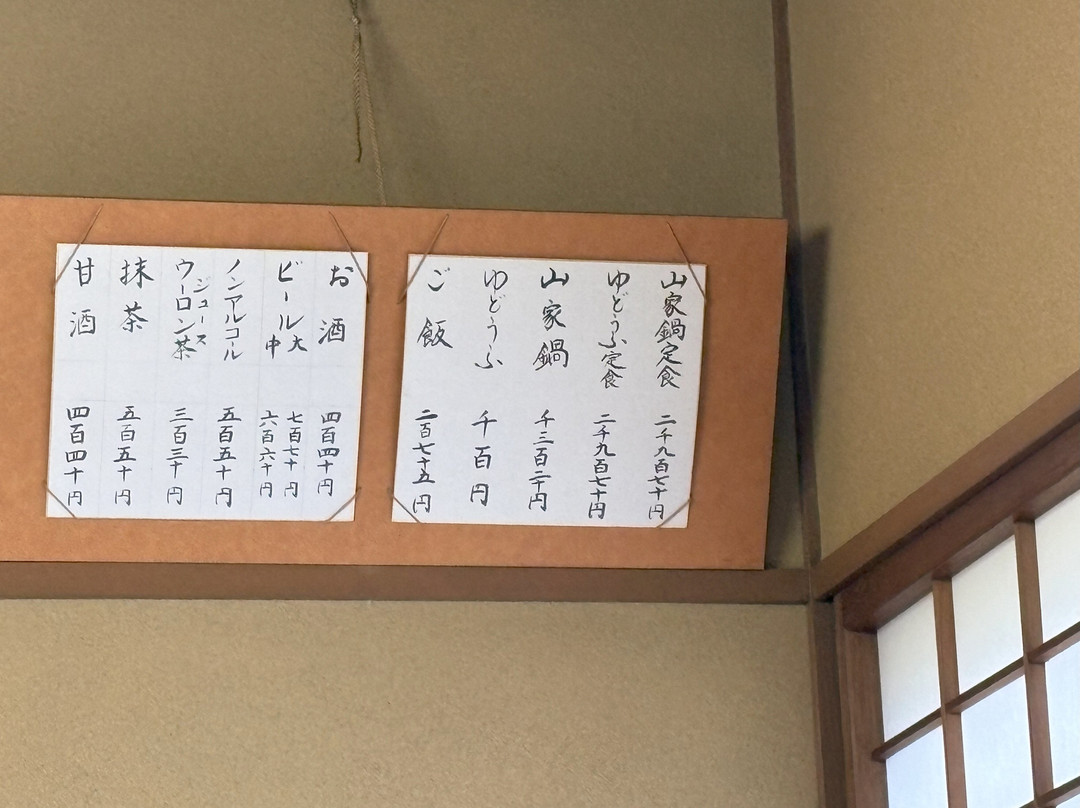 山家鍋定食 二千九百七十円
ゆどうふ定食 二千九百七十円
山家鍋 千三百二十円
ゆどうふ 千百円
ご飯 二百七十五円
お酒 四百四十円
ビール大 七百七十円
中 六百六十円
ノンアルコール 五百五十円
ジュース
ウーロン茶 三百三十円
抹茶 五百五十円
甘酒 四百四十円